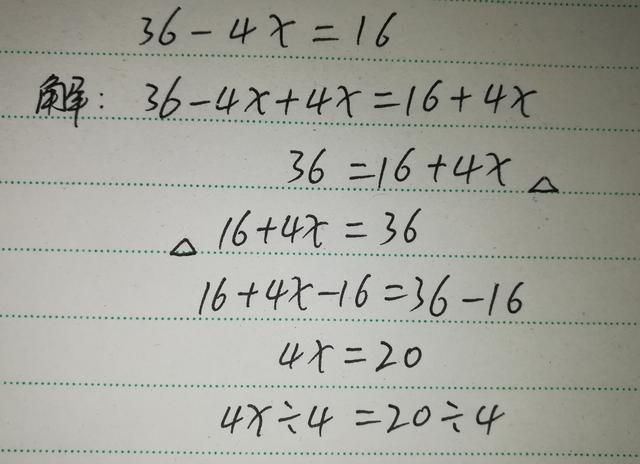 36-4x=16
解: 36-4x+4x=16+4x
36=16+4x △
△ 16+4x=36
16+4x-16=36-16
4x=20
4x÷4=20÷4